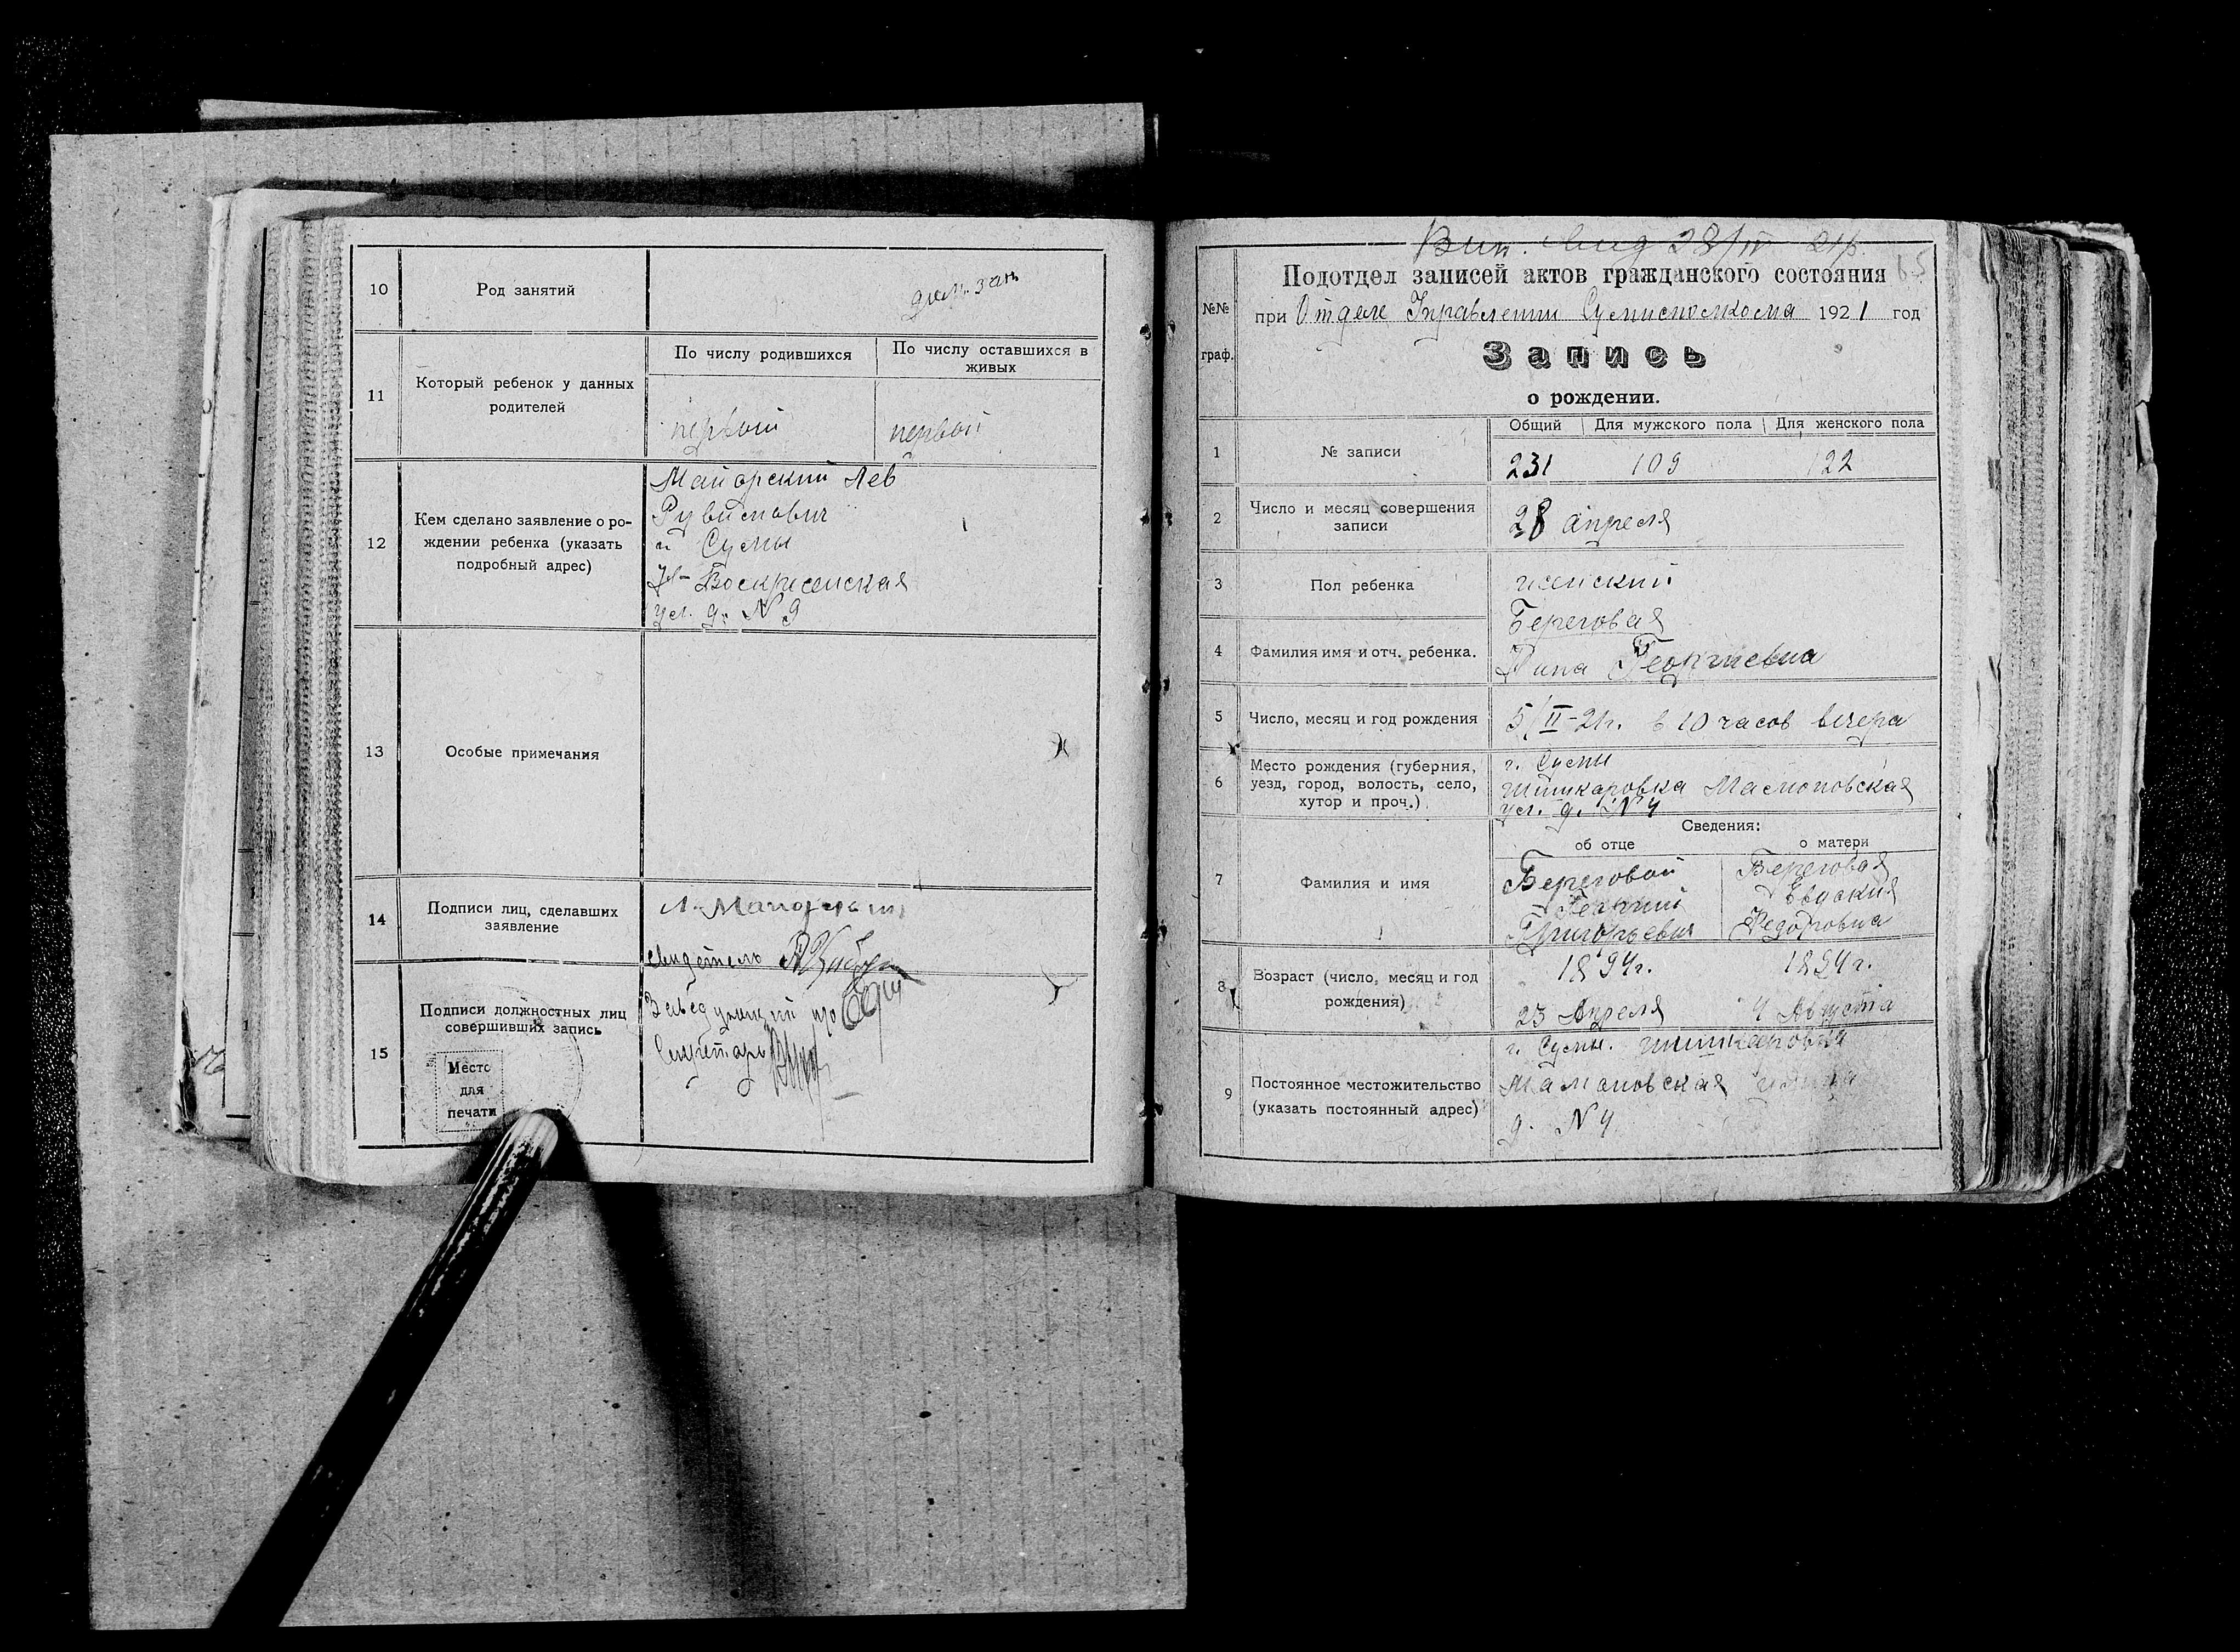 10
Род занятий
дом. зан
11
Который ребенок у данных
родителей
По числу родившихся
По числу оставшихся в
живых
первый
первый
12
Кем сделано заявление о ро-
ждении ребенка (указать
подробный адрес)
Майорский Лев
Рувимович
г. Сумы
Воскресенская
ул. д. № 9
13
Особые примечания
14
Подписи лиц, сделавших
заявление
Л. Майорский
свидетель
15
Подписи должностных лиц
совершивших запись
Место
для
печати
Заведующий
Секретарь
28/IV 21р.
65
№№
граф.
Подотдел записей актов гражданского состояния
при Отделе Управления Сумисполкома 1921 год
Запись
о рождении.
1
№ записи
Общий
Для мужского пола
Для женского пола
231
109
122
2
Число и месяц совершения
записи
28 апреля
3
Пол ребенка
женский
4
Фамилия имя и отч. ребенка.
Береговая
Георгиевна
5
Число, месяц и год рождения
5/II-21г. в 10 часов вечера
6
Место рождения (губерния,
уезд, город, волость, село,
хутор и проч.)
г. Сумы
Шишкаровка Мамоновская
ул. д. № 4
7
Фамилия и имя
Сведения:
об отце
о матери
Береговой
Георгий
Григорьевич
Береговая
Евдокия
Федоровна
8
Возраст (число, месяц и год
рождения)
1894г.
23 Апреля
1894г.
4 Августа
9
Постоянное местожительство
(указать постоянный адрес)
г. Сумы. Шишкаровка
Мамоновская улица
д. № 4